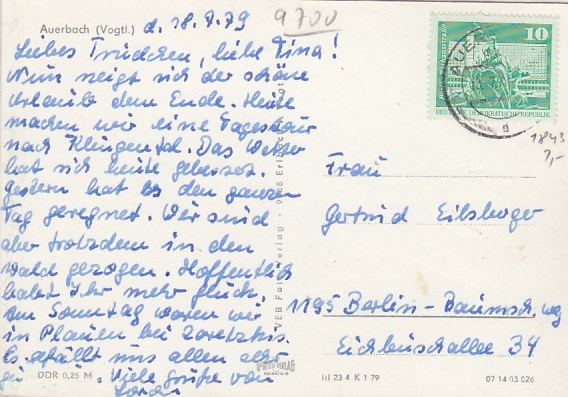 Auerbach (Vogtl.) d. 18.7.79
9700
Liebes Trudchen, liebe Tina!
Nun neigt sich der schöne
Urlaub dem Ende. Heute
machen wir eine Tagestour
nach Klingental. Das Wetter
hat sich heute gebessert.
Gestern hat es den ganzen
Tag geregnet. Wir sind
aber trotzdem in den
Wald gezogen. Hoffentlich
habt Ihr mehr Glück.
Am Sonntag waren wir
in Plauen bei
Es gefällt uns allen
Viele Grüße von
DDR 0,25 M
VEB Verlag
10
DEUTSCHE DEMOKRATISCHE REPUBLIK
1843
Frau
Gertrud Eilsberger
1195 Berlin-Baumsch.weg
Eichbuschallee 34
III 23 4 K 1 79
07 14 03 026